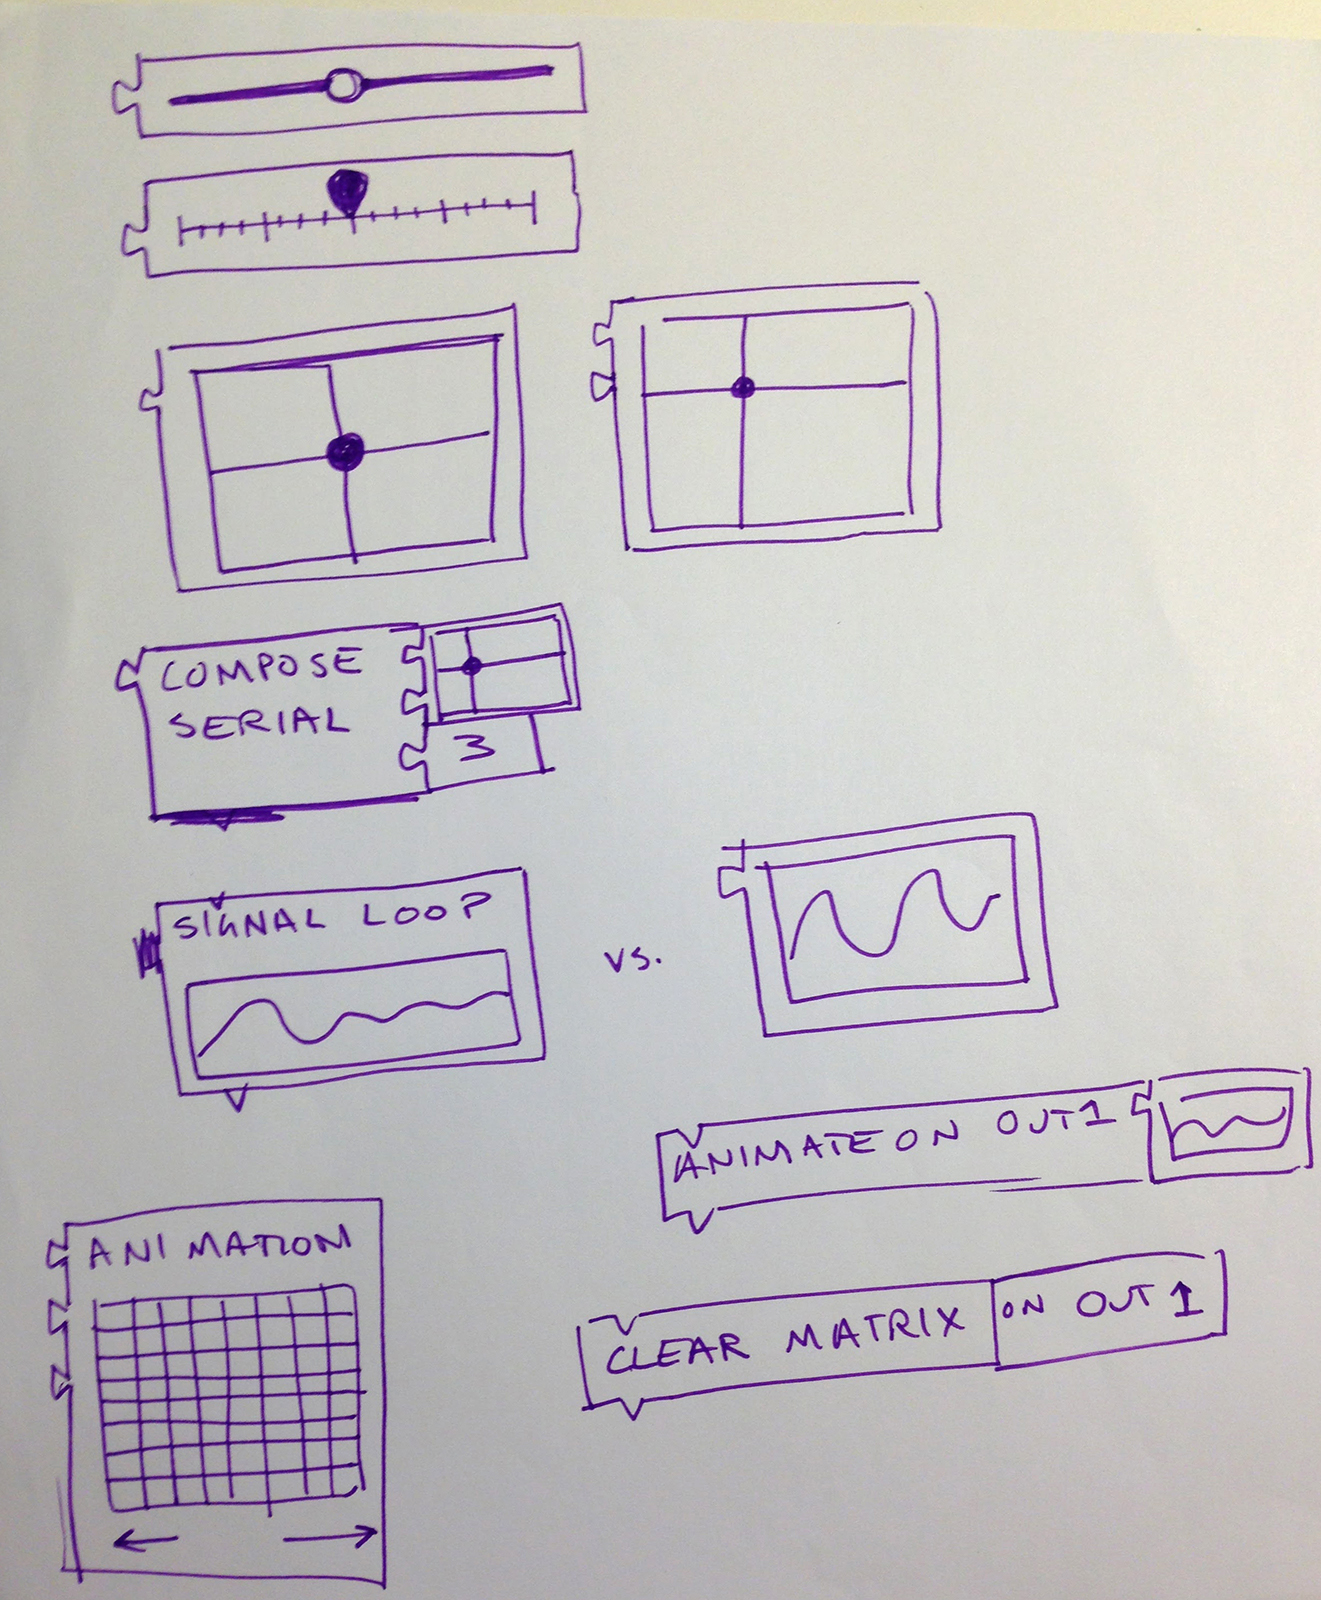 COMPOSE
SERIAL
3
SIGNAL LOOP
vs.
ANIMATE ON OUT 1
ANIMATION
CLEAR MATRIX ON OUT 1